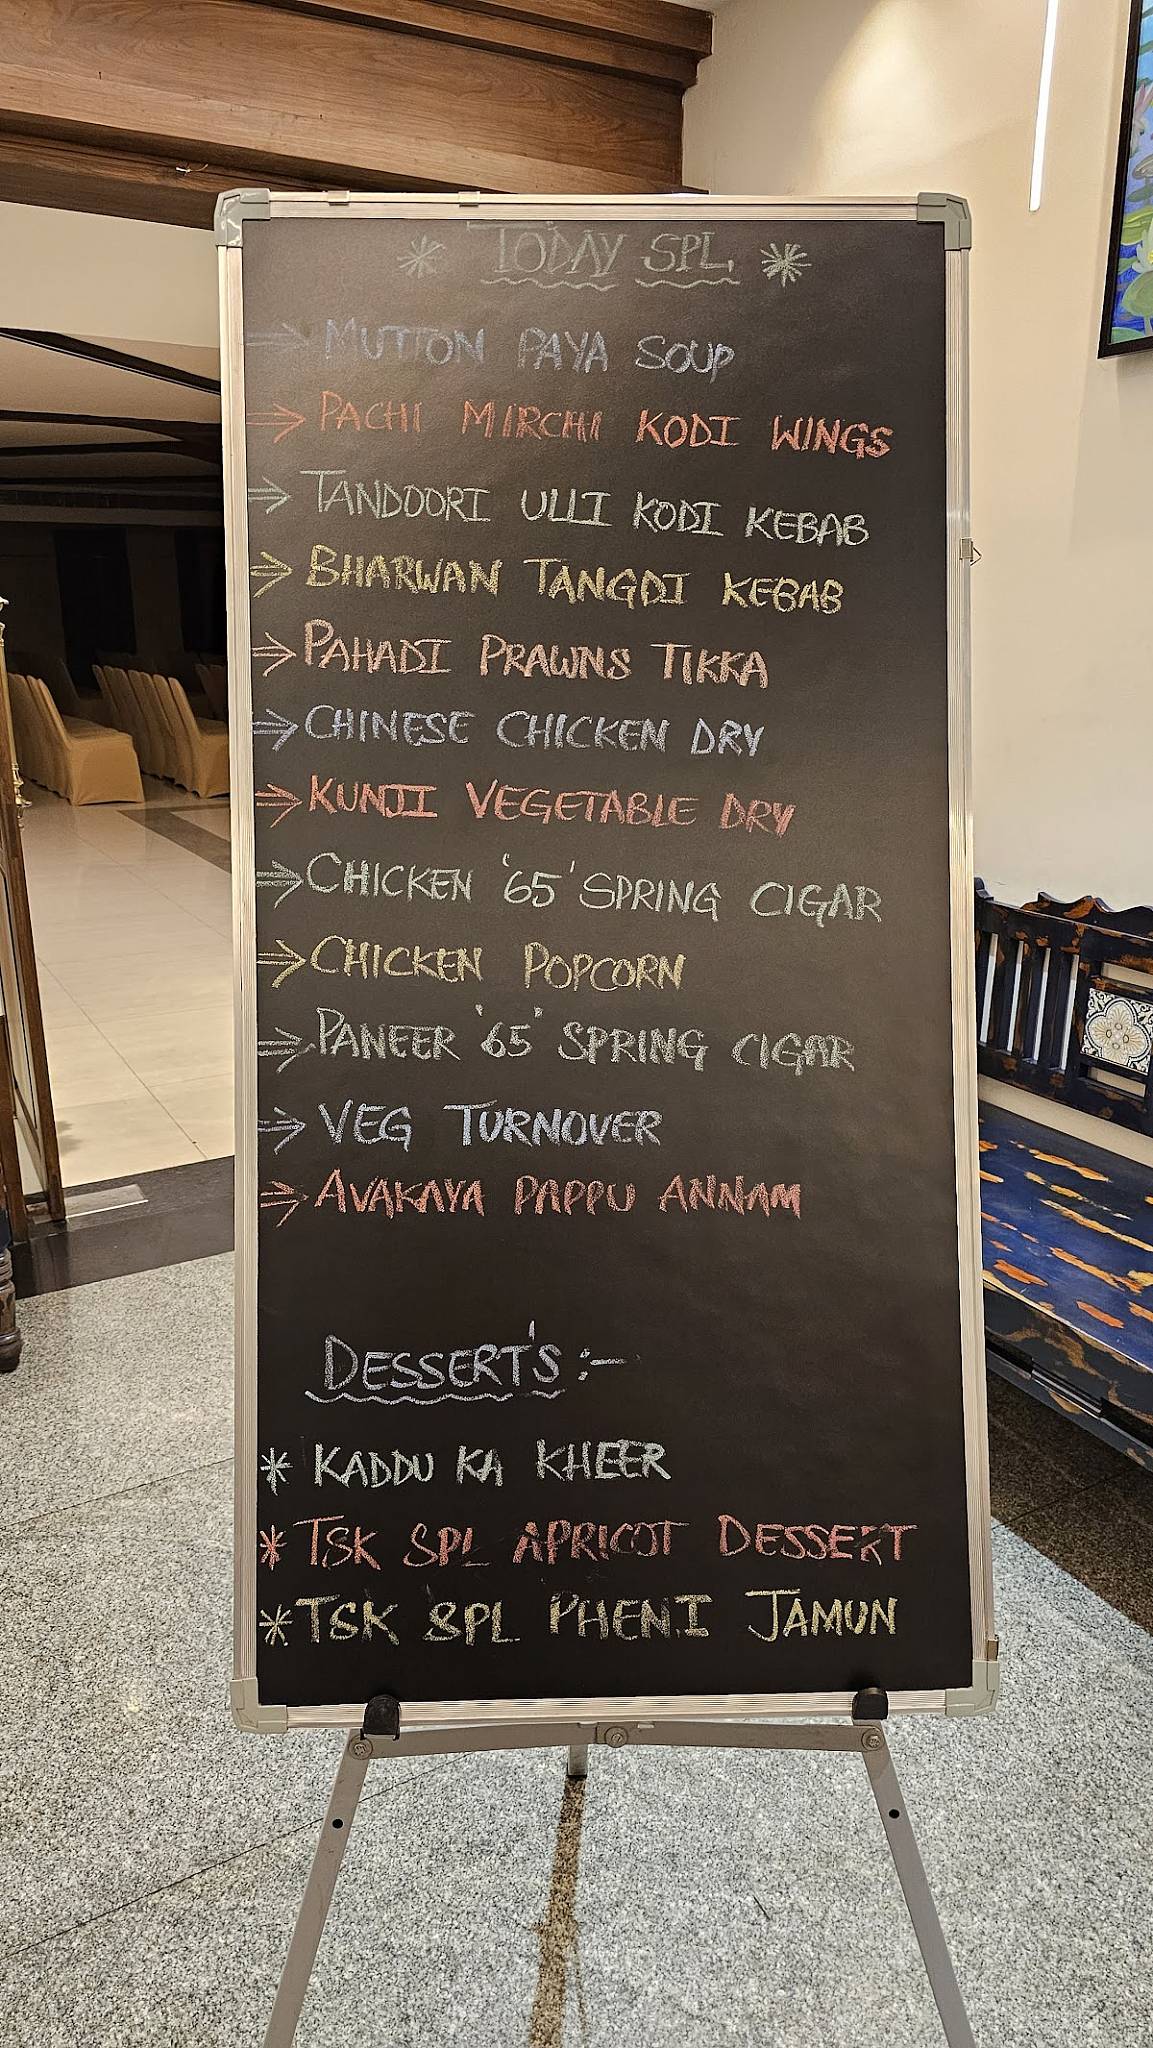 * TODAY SPL *
⇒ MUTTON PAYA SOUP
⇒ PACHI MIRCHI KODI WINGS
⇒ TANDOORI ULLI KODI KEBAB
⇒ BHARWAN TANGDI KEBAB
⇒ PAHADI PRAWNS TIKKA
⇒ CHINESE CHICKEN DRY
⇒ KUNJI VEGETABLE DRY
⇒ CHICKEN '65' SPRING CIGAR
⇒ CHICKEN POPCORN
⇒ PANEER '65' SPRING CIGAR
⇒ VEG TURNOVER
⇒ AVAKAYA PAPPU ANNAM
DESSERT'S :-
* KADDU KA KHEER
* TSK SPL APRICOT DESSERT
* TSK SPL PHENI JAMUN